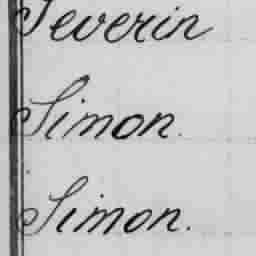 Severin
Simon.
Simon.